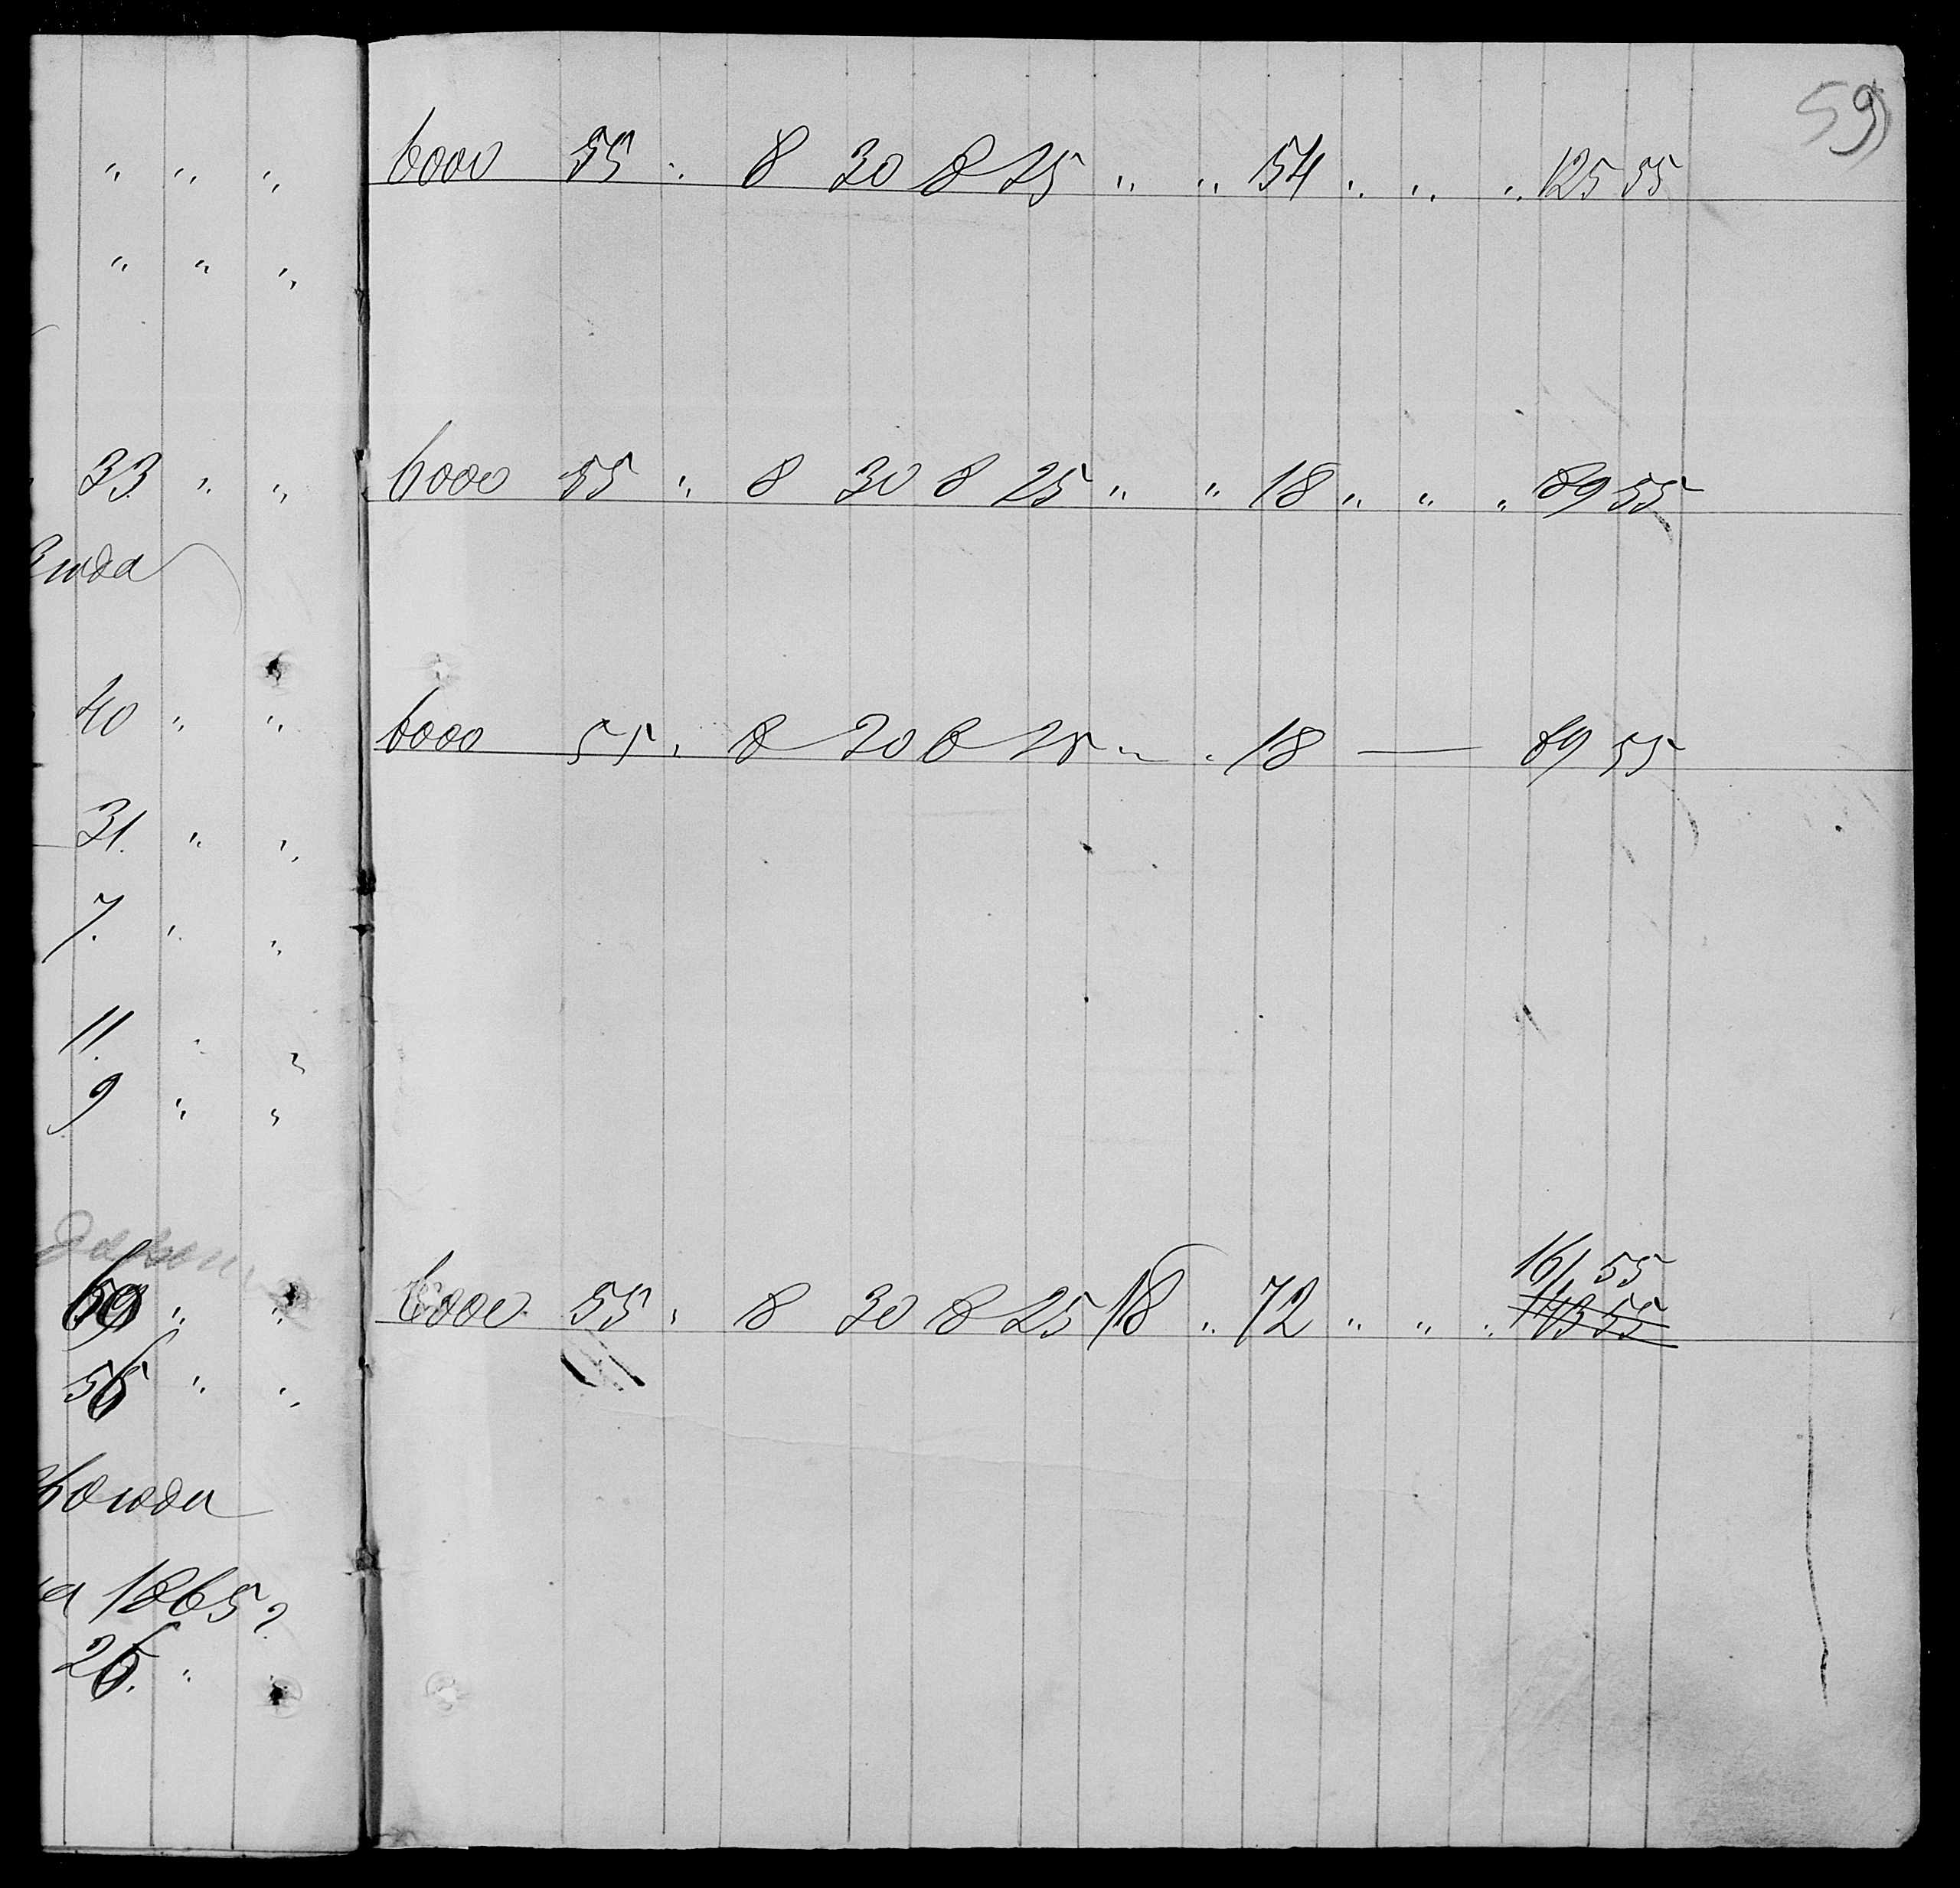 59
„ „ „ 6000 55 „ 8 30 8 25 „ „ 54 „ „ „ 125 55
„ „ „
33. „ „ 6000 55 „ 8 30 8 25 „ „ 18 „ „ „ 89 55
40 „ „ 6000 55 „ 8 30 8 25 „ „ 18 — 89 55
31. „ „
7. „ „
11. „ „
9 „ „
161 55
59 „ „ 6000 55 „ 8 30 8 25 18 „ 72 „ „ „ 143 55
56 „ „
1865 г.
26. „